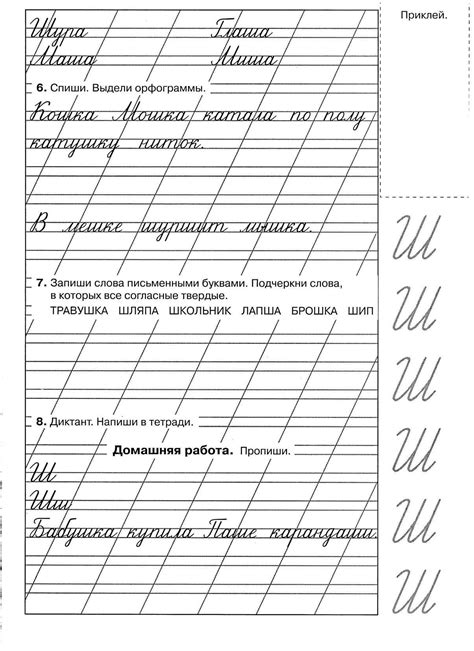 Приклей.
Шура Глаша
Маша Миша
6. Спиши. Выдели орфограммы.
Кошка Мошка катала по полу
катушку ниток.
В мешке шуршит мышка.
7. Запиши слова письменными буквами. Подчеркни слова,
в которых все согласные твердые.
ТРАВУШКА ШЛЯПА ШКОЛЬНИК ЛАПША БРОШКА ШИП
8. Диктант. Напиши в тетради.
Домашняя работа. Пропиши.
Ш
Шш
Бабушка купила Паше карандаши.
Ш
Ш
Ш
Ш
Ш
Ш